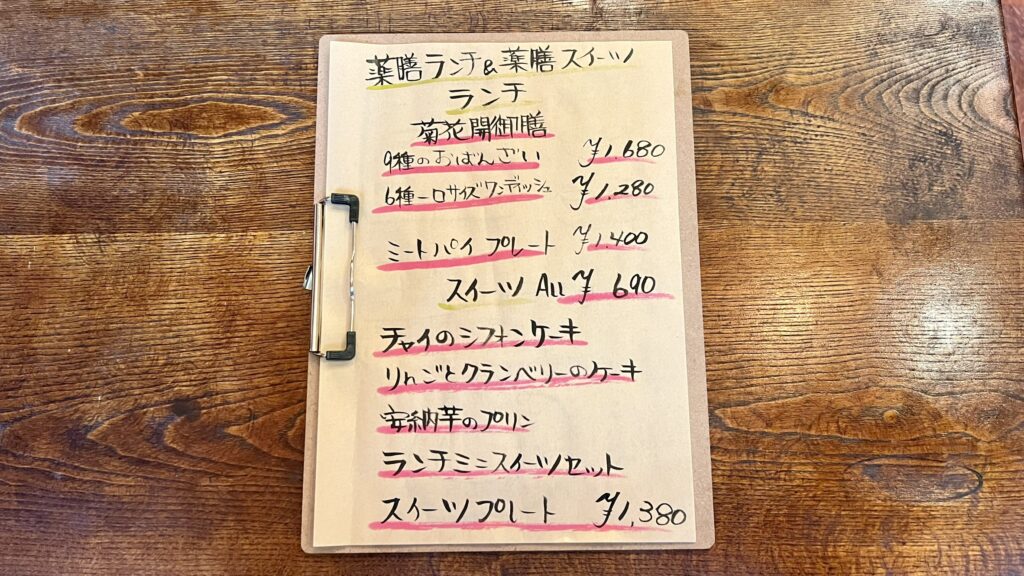 薬膳ランチ&薬膳スイーツ
ランチ
菊花開御膳
9種のおばんざい ¥1.680
6種一口サイズワンディッシュ ¥1,280
ミートパイプレート ¥1.400
スイーツ All ¥690
チャイのシフォンケーキ
りんごとクランベリーのケーキ
安納芋のプリン
ランチミニスイーツセット
スイーツプレート ¥1,380